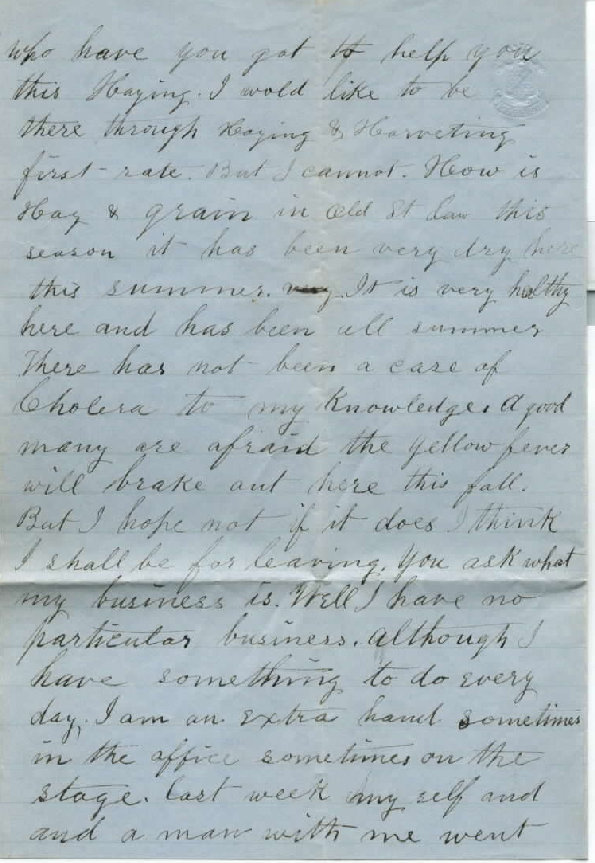 who have you got to help you
this Haying. I wold like to be
there through Haying & Harveting
first rate. But I cannot. How is
Hay & grain in Old St Law this
season it has been very dry here
this summer. very It is very helthy
here and has been all summer
There has not been a case of
Cholera to my Knowledge. A good
many are afraid the yellow fever
will brake out here this fall.
But I hope not if it does I think
I shall be for leaving. You ask what
my business is. Well I have no
particular business. Although I
have something to do every
day. I am an extra hand sometimes
in the office sometimes on the
stage. Last week my self and
and a man with me went